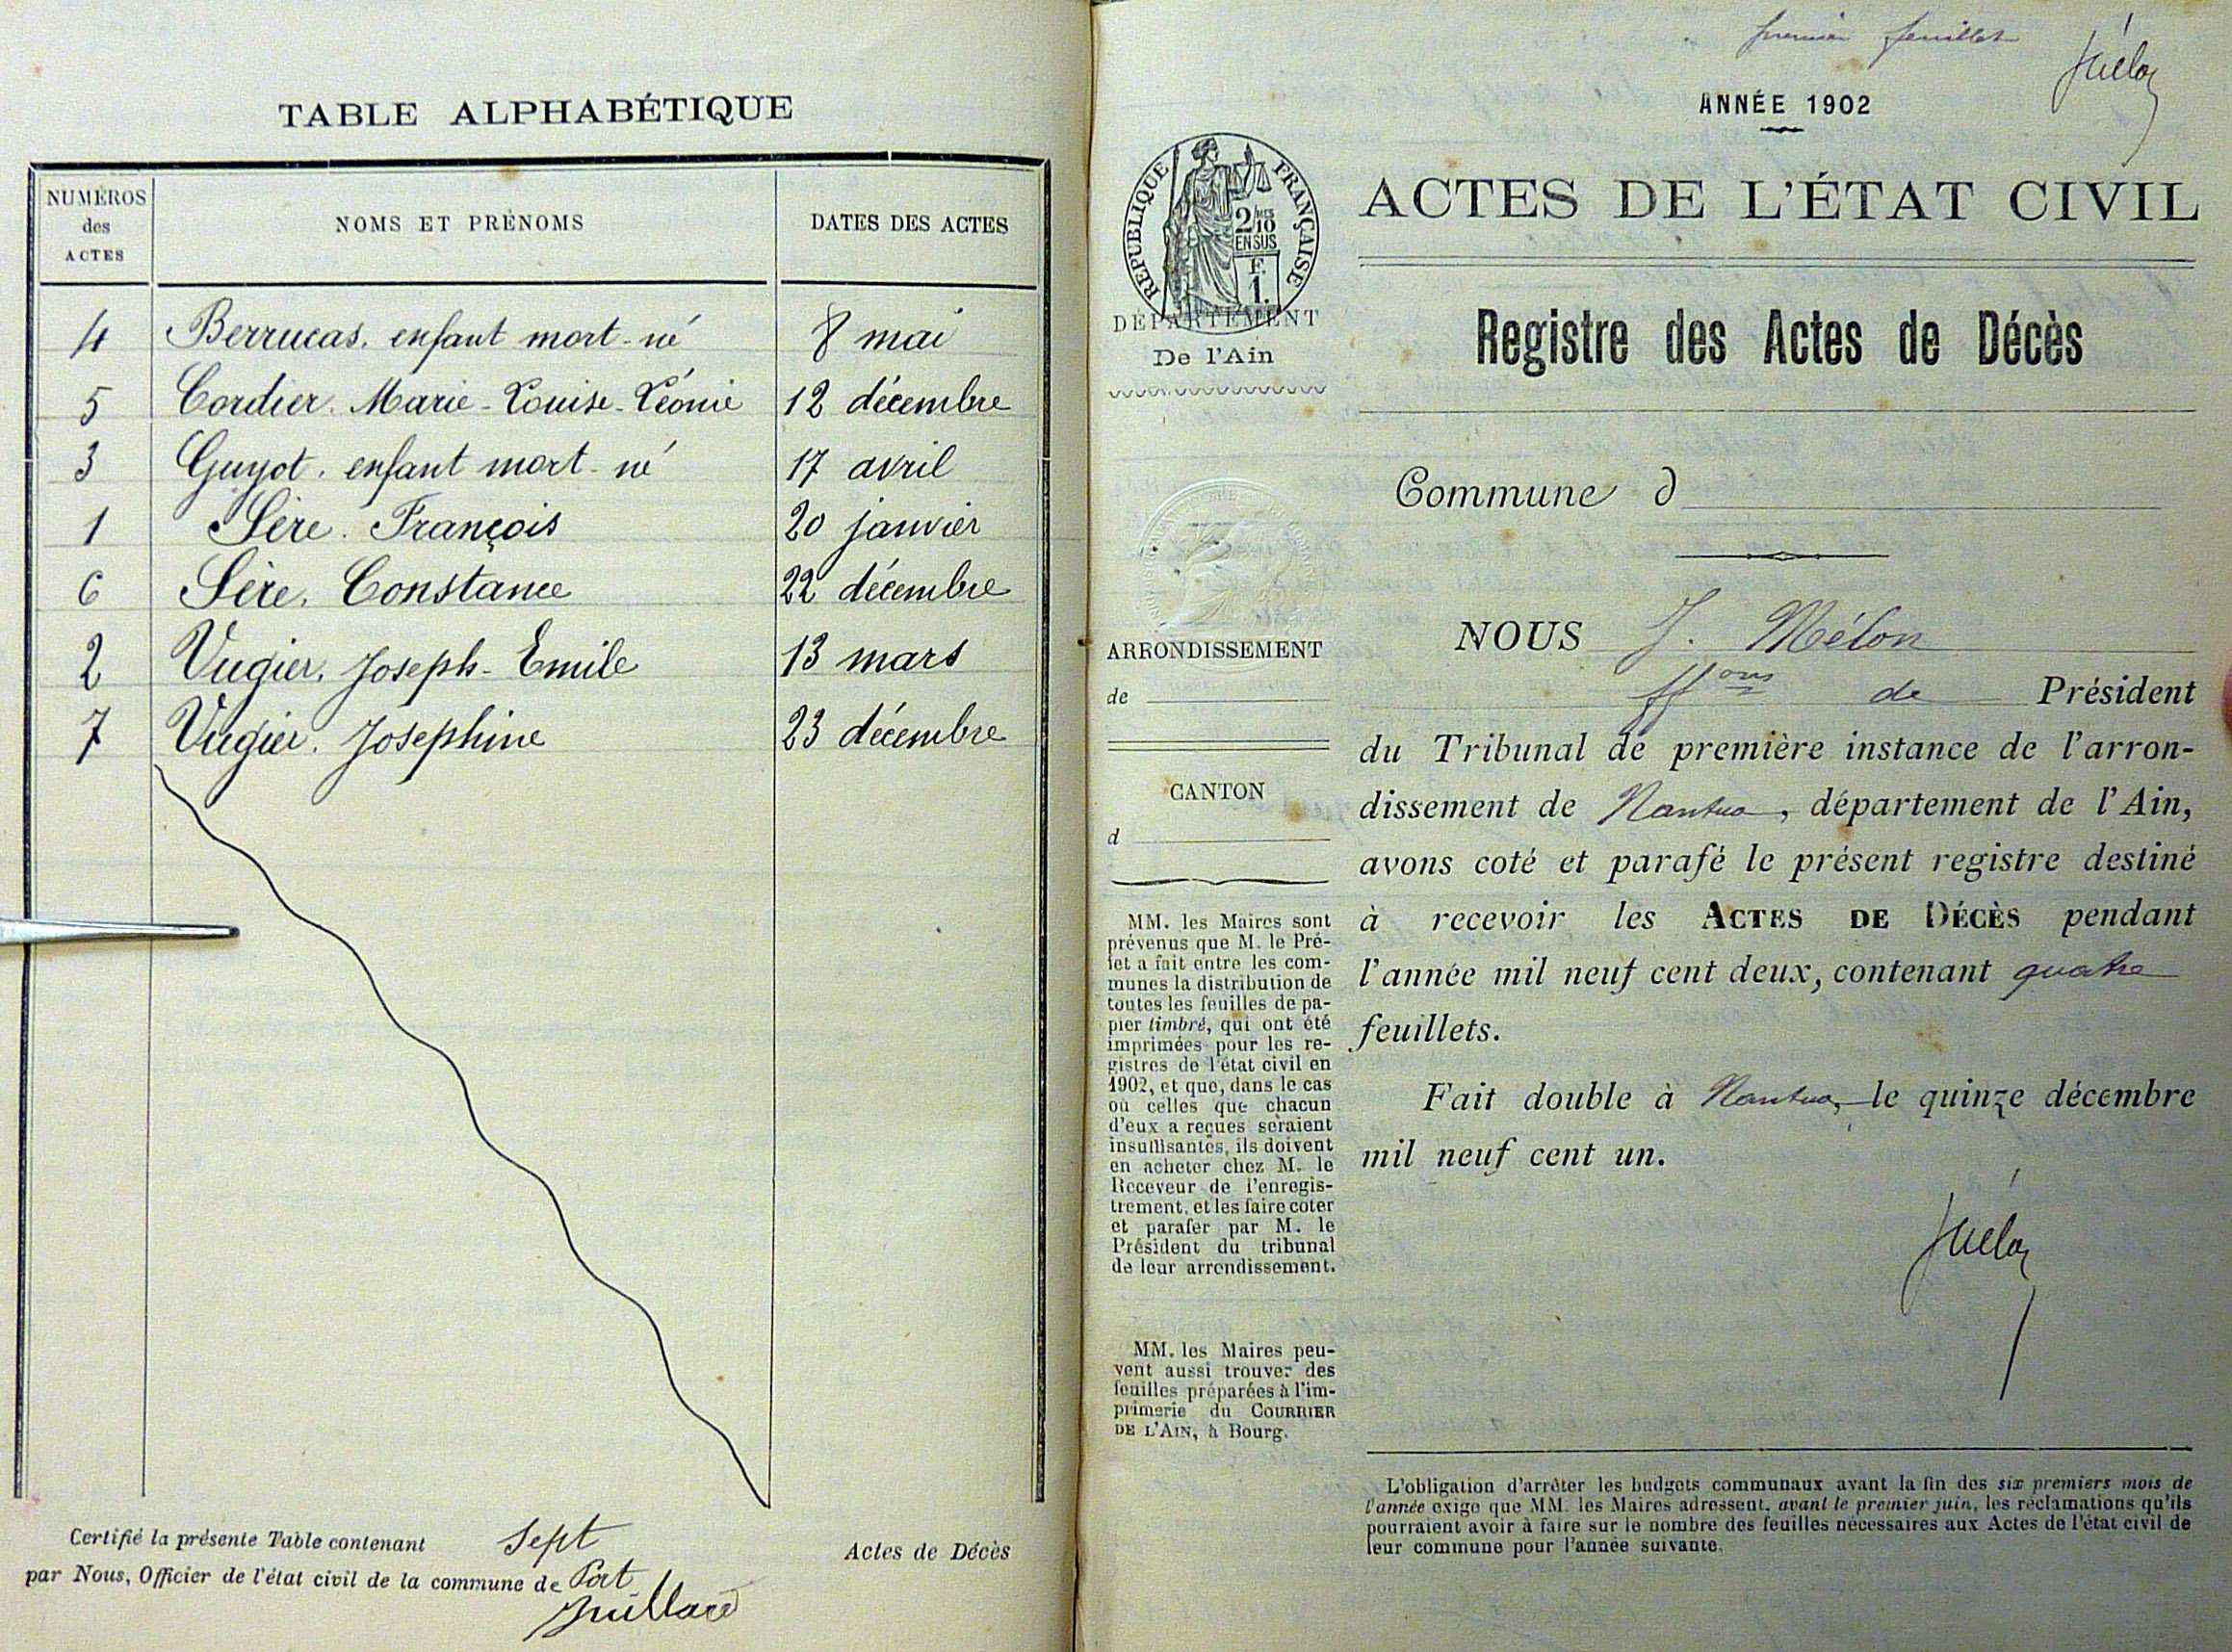 TABLE ALPHABÉTIQUE
NUMÉROS des ACTES NOMS ET PRÉNOMS DATES DES ACTES
4 Berrucas. enfant mort-né 8 mai
5 Cordier. Marie-Louise-Léonie 12 décembre
3 Guyot. enfant mort-né 17 avril
1 Sère. François 20 janvier
6 Sère. Constance 22 décembre
2 Vugier. Joseph-Emile 13 mars
7 Vugier. Joséphine 23 décembre
Certifié la présente Table contenant Sept Actes de Décès
par Nous, Officier de l'état civil de la commune de Port
Juillard
premier feuillet
ANNÉE 1902
RÉPUBLIQUE FRANÇAISE
2/10 MES
EN SUS
F.
1.
DÉPARTEMENT
De l'Ain
ARRONDISSEMENT
de
CANTON
d
MM. les Maires sont
prévenus que M. le Pré-
fet a fait entre les com-
munes la distribution de
toutes les feuilles de pa-
pier timbré, qui ont été
imprimées pour les re-
gistres de l'état civil en
1902, et que, dans le cas
où celles que chacun
d'eux a reçues seraient
insuffisantes, ils doivent
en acheter chez M. le
Receveur de l'enregis-
trement, et les faire coter
et parafer par M. le
Président du tribunal
de leur arrondissement.
MM. les Maires peu-
vent aussi trouver des
feuilles préparées à l'im-
primerie du COURRIER
DE L'AIN, à Bourg.
ACTES DE L'ÉTAT CIVIL
Registre des Actes de Décès
Commune d
NOUS J. Mélon
ffons de Président
du Tribunal de première instance de l'arron-
dissement de Nantua, département de l'Ain,
avons coté et parafé le présent registre destiné
à recevoir les ACTES DE DÉCÈS pendant
l'année mil neuf cent deux, contenant quatre
feuillets.
Fait double à Nantua, le quinze décembre
mil neuf cent un.
L'obligation d'arrêter les budgets communaux avant la fin des six premiers mois de
l'année exige que MM. les Maires adressent, avant le premier juin, les réclamations qu'ils
pourraient avoir à faire sur le nombre des feuilles nécessaires aux Actes de l'état civil de
leur commune pour l'année suivante.